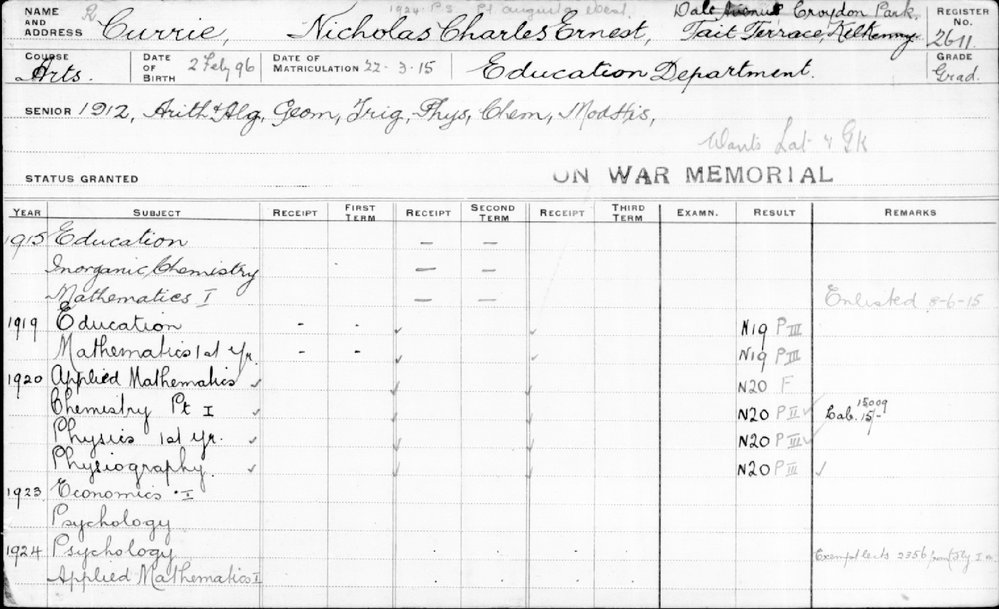 NAME AND ADDRESS Currie, Nicholas Charles Ernest, 1924 P.S. Pt Augusta West. Dale Avenue Croydon Park. Tait Terrace, Kilkenny. REGISTER No. 2611
COURSE Arts. DATE OF BIRTH 2 Feby 96 DATE OF MATRICULATION 22-3-15 Education Department. GRADE Grad.
SENIOR 1912, Arith & Alg, Geom, Trig, Phys, Chem, Mod His,
Wants Lat & Gk
STATUS GRANTED ON WAR MEMORIAL
YEAR SUBJECT RECEIPT FIRST TERM RECEIPT SECOND TERM RECEIPT THIRD TERM EXAMN. RESULT REMARKS
1915 Education – –
Inorganic Chemistry – –
Mathematics I – – Enlisted 8-6-15
1919 Education - - ✓ ✓ N19 P III
Mathematics 1st Yr. - - ✓ ✓ N19 P III
1920 Applied Mathematics ✓ ✓ ✓ N20 F
Chemistry Pt I ✓ ✓ ✓ N20 P II ✓ Lab. 15009 15/-
Physics 1st Yr. ✓ ✓ ✓ N20 P III ✓
Physiography ✓ ✓ ✓ N20 P III ✓
1923 Economics I
Psychology
1924 Psychology Exempt lects 2356
Applied Mathematics I